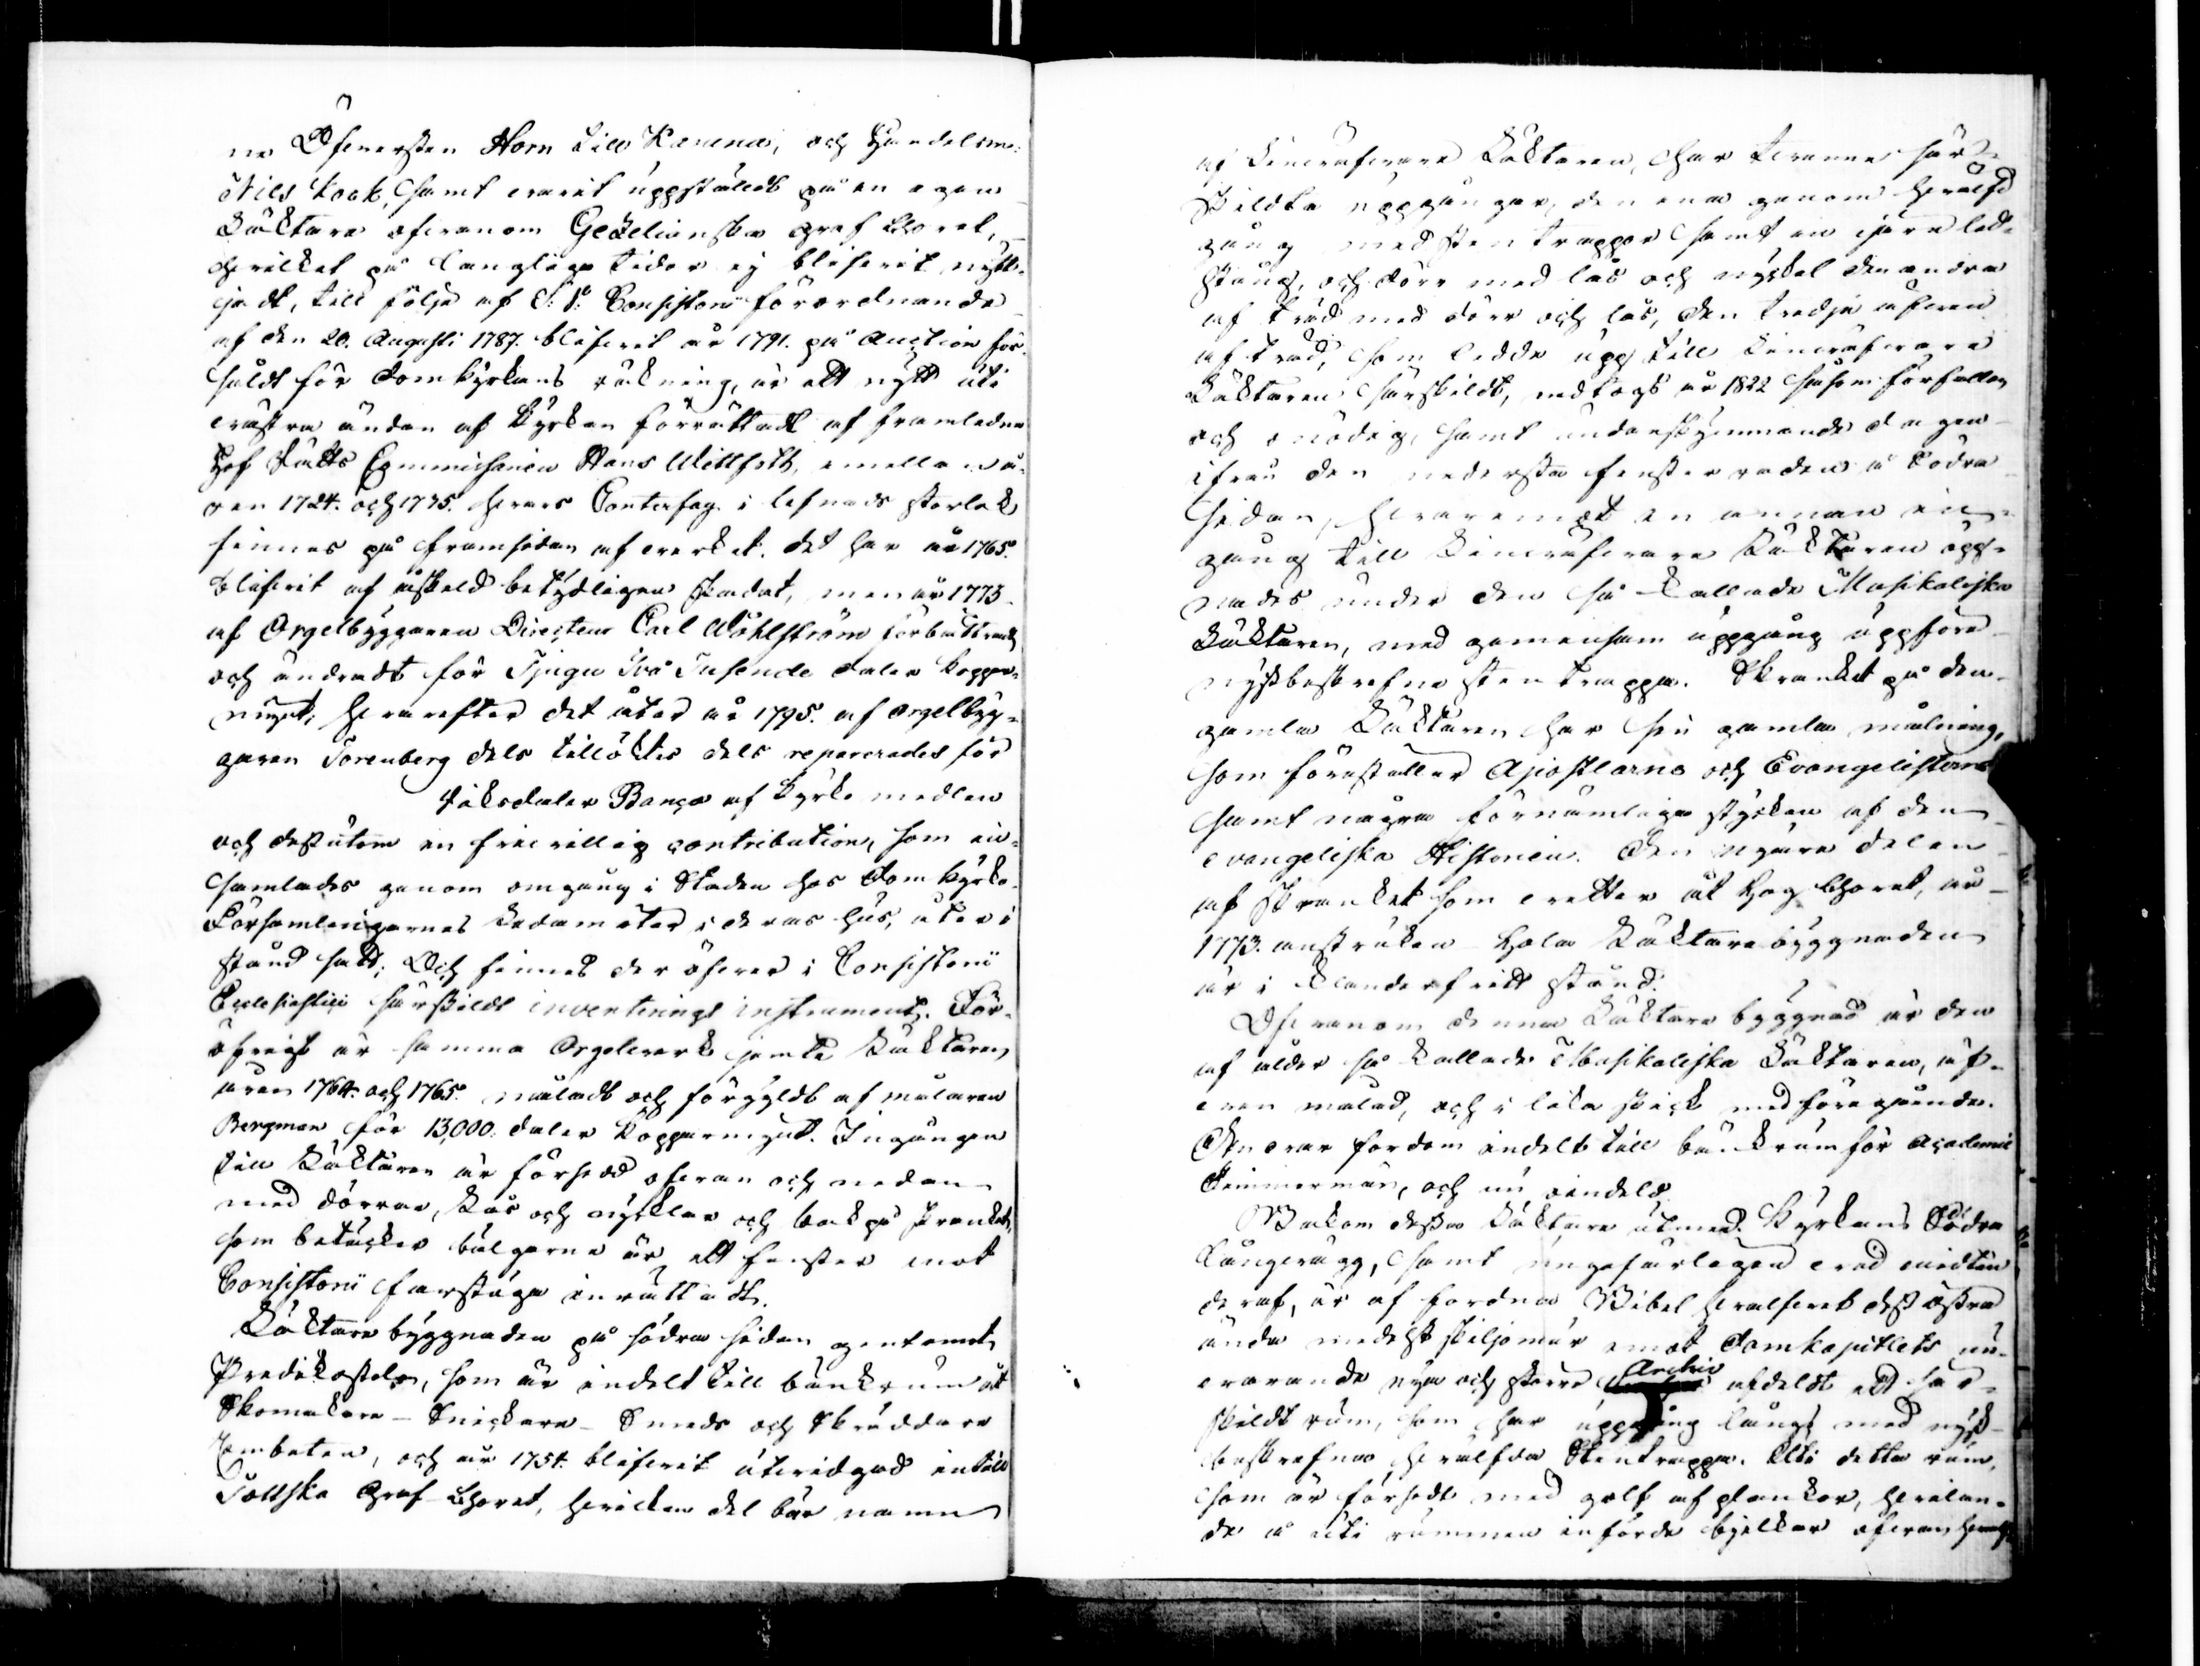 ne Öfwersten Horn till Kanena, och Handelsm:
Nils Kock, samt warit uppstäldt på en egen
Läktare ofwanom Gezelianska Graf Choret,
hwilket på langliga tider ej blifwit nytt-
jadt, till följe af S: V: Consistorii förordnande
af den 20. Augusti 1787. blifwit år 1791. på Auction för-
såldt för Domkyrkans räkning, är ett nytt uti
wästra ändan af kyrkan förrättadt af framledne
Hof Rätts Commissarien Hans Wittfoth, emellan å-
ren 1724. och 1735. hwars Conterfey i lefnads storlek
finnes på framsidan af werket. Det har år 1765.
blifwit af åskeld betydligen skadat, men år 1775
af Orgelbyggaren Directeur Carl Wåhlström förbättrad
och ändradt för Tjugu två Tusende daler Koppar-
mynt; hwarefter det åter år 1795. af orgelbyg-
garen Torenberg dels tillöktes dels reparerades för
Riksdaler Banco af kyrko medlen
och dessutom en friwillig contribution, som in-
samlades genom omgång i Staden hos Domkyrko-
Församlingarnes Ledamöter i deras hus, åter i
stånd satt; Och finnes der öfwer i Consistorii
Ecclesiastici särskildt inventerings instrument. För-
öfrigt är samma Orgelwerk jemte Läktaren
åren 1764. och 1765. måladt och förgyldt af målaren
Bergman för 13,000. daler Kopparmynt. Ingången
till Läktaren är försedd ofwan och nedan
med dörrar, lås och nycklar och bakpå skranket,
som betäcker bälgarne är ett fenster mot
Consistorii farstuga inrättadt.
Läktare byggnaden på södra sidan gentemot
Predikostolen, som är indelt till bänkrum åt
Skomakare - Snickare - Smeds och Skräddare
Embeten, och år 1754. blifwit utwidgad intill
Tottska Graf Choret, hwilken del bär namn
af Linwäfware Läktaren, har trenne sär-
skildta uppgångar, den ena genom hwälfd
gång med sten trappor samt en jern led-
stång, och dörr med lås och nyckel den andra
af träd med dörr och lås, den tredje äfwen
af träd, som ledde upp till Linwäfware
Läktaren särskildt, nedtogs år 1822 såsom förfallen
och onödig, samt undanskymmande dagen
ifrån den nedersta fenster raden å Södra
sidan, hwaremot en annan in-
gång till Linwäfware Läktaren öpp-
nades under den så kallade Musikaliska
Läktaren, med gemensam uppgång uppföre
nyssbeskrefne sten trappa. Skranket på den
gamla Läktaren har sin gamla målning,
som föreställer Apostlarna och Evangelisterne
samt några förnämliga stycken af den
evangeliska Historien. Den nyare delen
af skranket som wetter åt Hög Choret, är
1773. anstruken. Hela Läktare byggnaden
är i klanderfritt stånd.
Ofwanom denna Läktare byggnad är den
af ålder så kallade Musikaliska Läktaren, äf-
wen målad, och i lika skick med föregående.
Den war fordom indelt till bänkrum för Academie
Timmermän, och nu oindeld.
Bakom dessa Läktare utmed Kyrkans Södra
Långwägg, samt ungefärligen wid midten
deraf, är af fordna Bibel hwalfwet dess östra
ända medelst skiljomur emot Domkapitlets nu-
warande nya och större Archiv afdeldt ett sär-
skildt rum, som har uppgång längs med nyss
beskrefna hwälfda Stentrappa. Uti detta rum,
som är försedt med golf af plankor, hwilan-
de å uti rummen införde bjelkar ofwan hwalf-